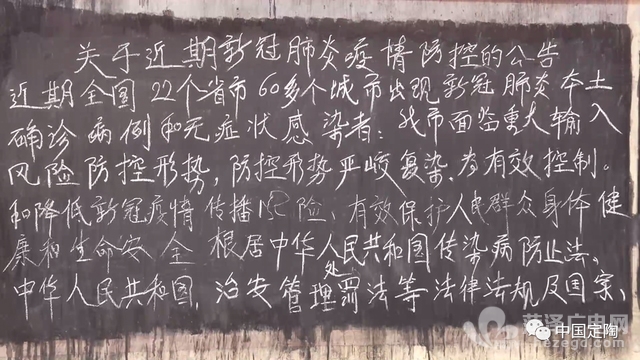 关于近期新冠肺炎疫情防控的公告
近期全国22个省市60多个城市出现新冠肺炎本土
确诊病例和无症状感染者：我市面临重大输入
风险防控形势，防控形势严峻复杂、为有效控制。
和降低新冠疫情传播风险、有效保护人民群众身体健
康和生命安全 根居中华人民共和国传染病防止法、
中华人民共和国、治安管理处罚法等法律法规及国家、
菏泽广电网
ezego.com
中国定陶